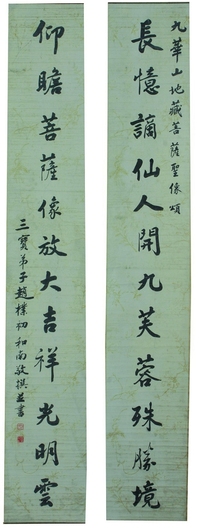 九華山地藏菩薩聖像頌
長憶謫仙人開九芙蓉殊勝境
仰瞻菩薩像放大吉祥光明雲
三寶弟子趙樸初和南敬撰並書